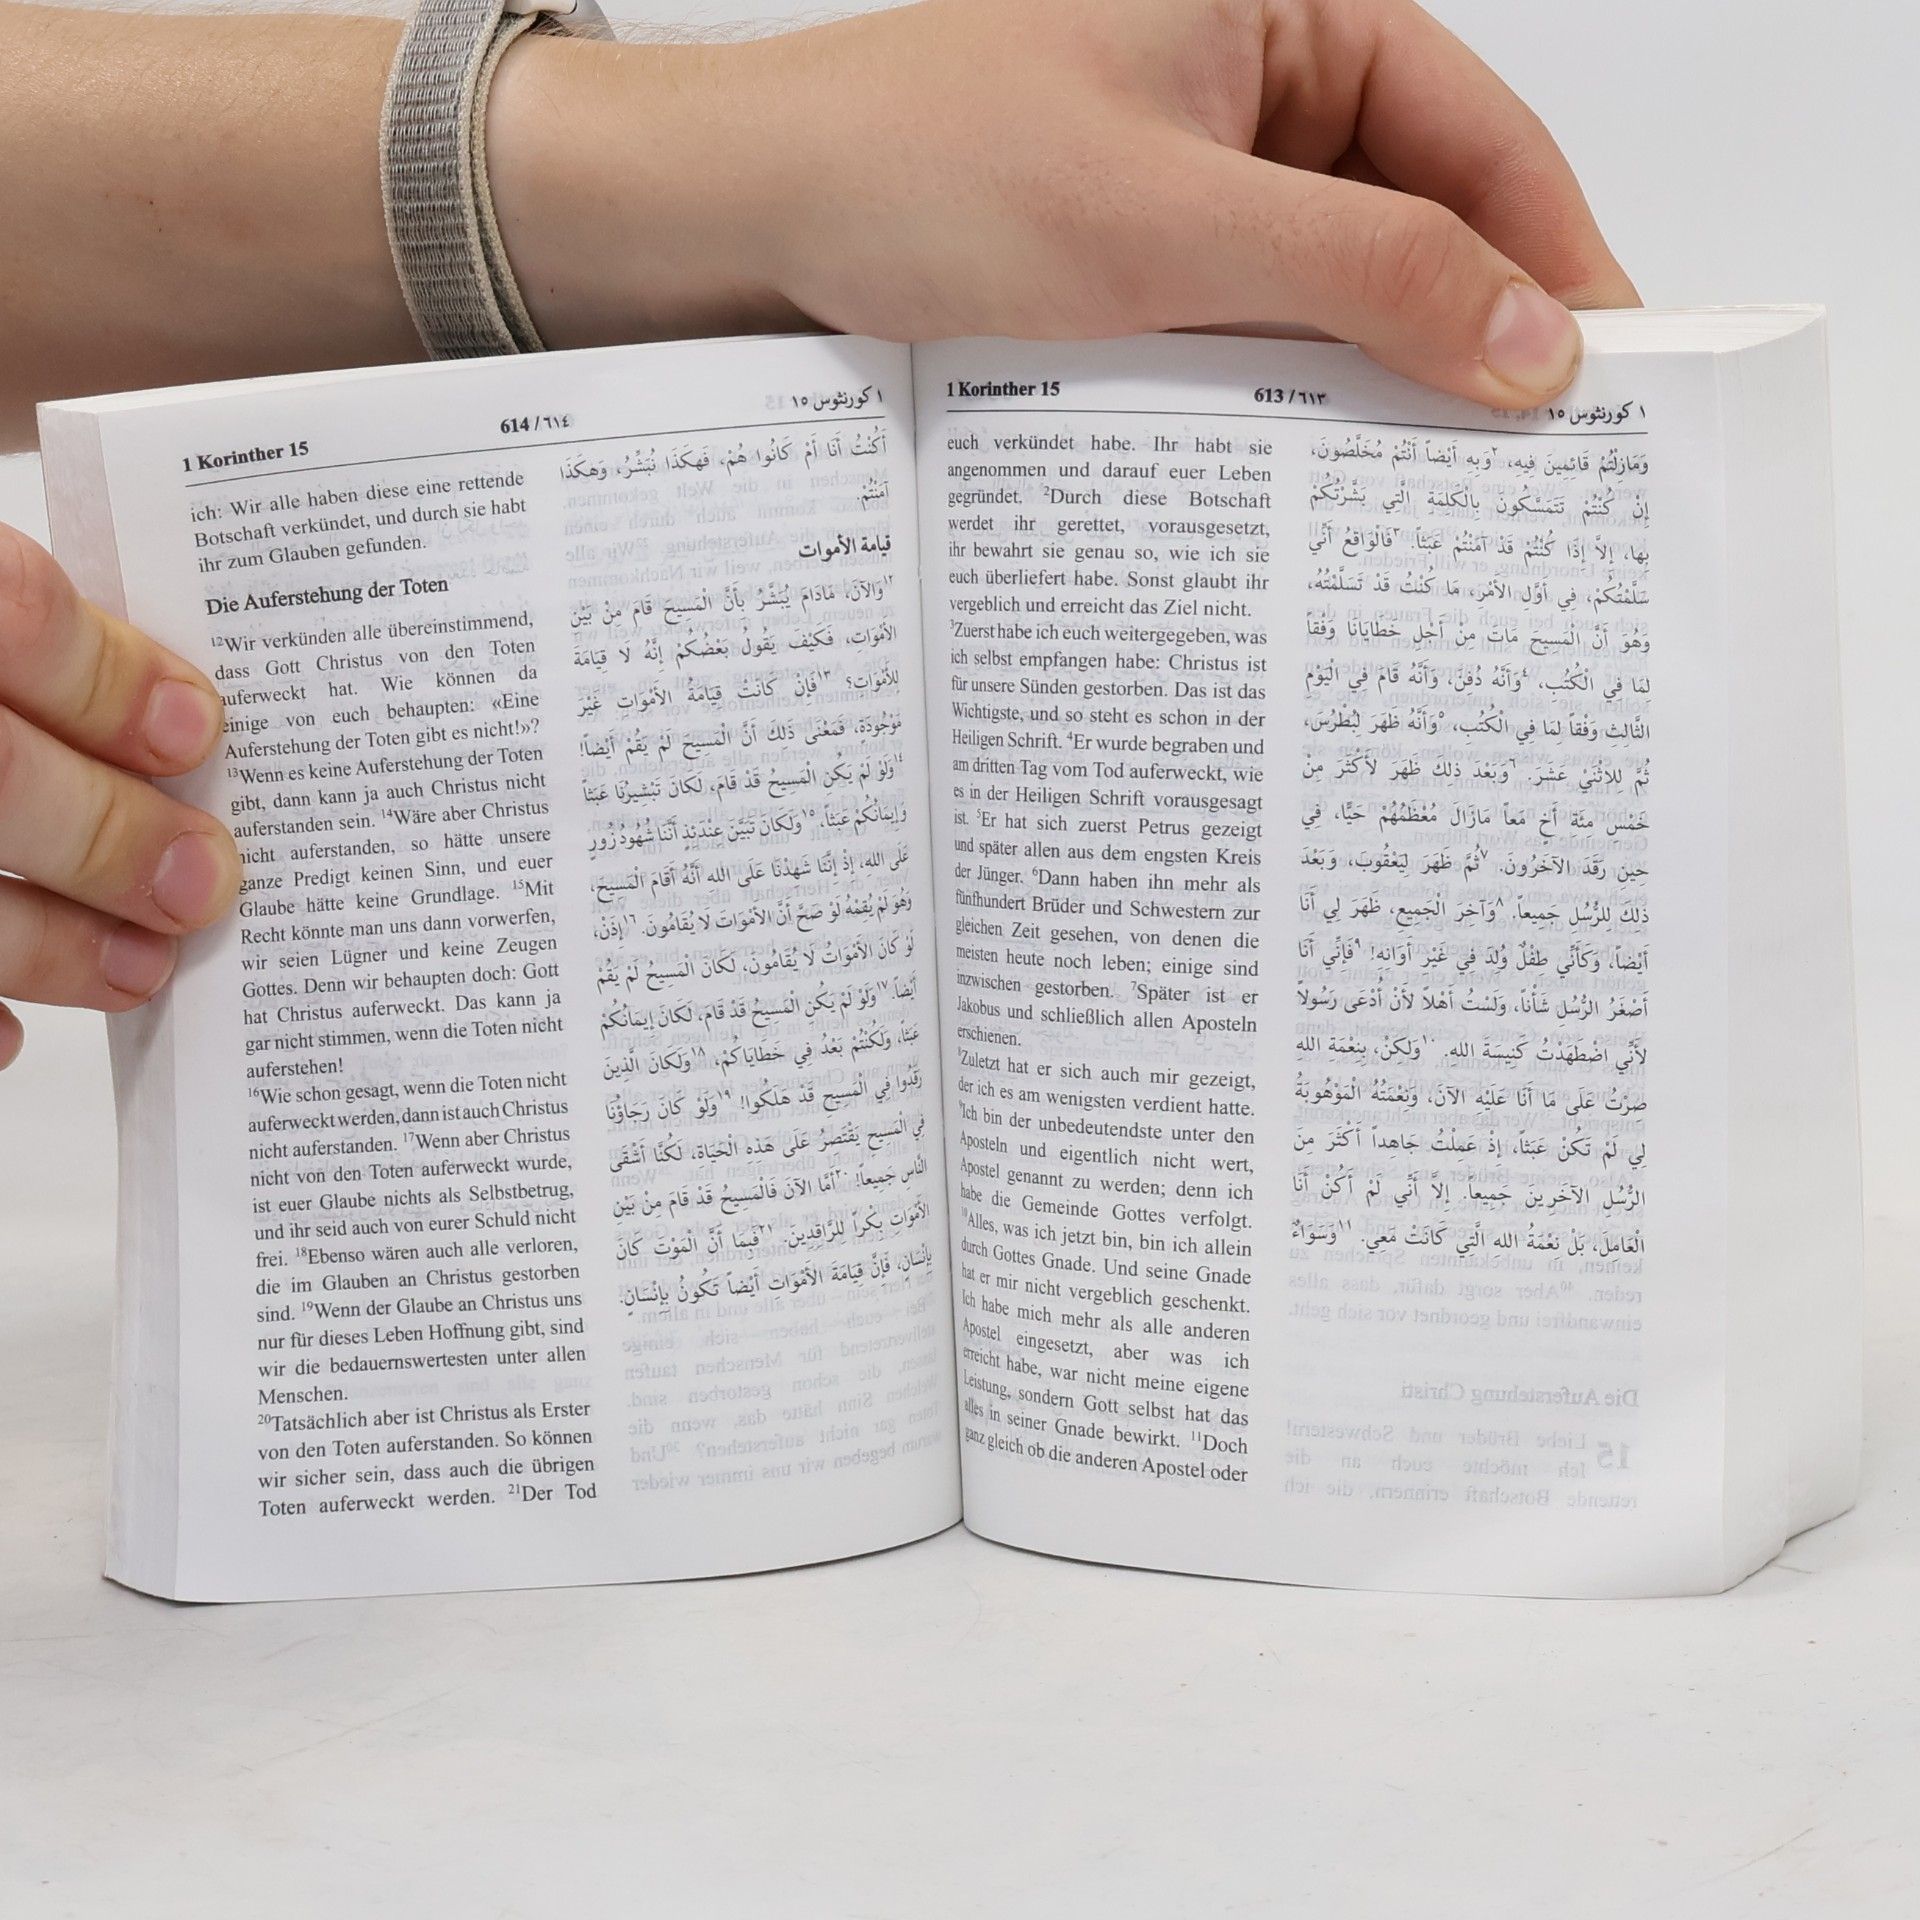 1 Korinther 15
613 / ٦١٣
١ كورنثوس ١٥
euch verkündet habe. Ihr habt sie
angenommen und darauf euer Leben
gegründet. ²Durch diese Botschaft
werdet ihr gerettet, vorausgesetzt,
ihr bewahrt sie genau so, wie ich sie
euch überliefert habe. Sonst glaubt ihr
vergeblich und erreicht das Ziel nicht.
³Zuerst habe ich euch weitergegeben, was
ich selbst empfangen habe: Christus ist
für unsere Sünden gestorben. Das ist das
Wichtigste, und so steht es schon in der
Heiligen Schrift. ⁴Er wurde begraben und
am dritten Tag vom Tod auferweckt, wie
es in der Heiligen Schrift vorausgesagt
ist. ⁵Er hat sich zuerst Petrus gezeigt
und später allen aus dem engsten Kreis
der Jünger. ⁶Dann haben ihn mehr als
fünfhundert Brüder und Schwestern zur
gleichen Zeit gesehen, von denen die
meisten heute noch leben; einige sind
inzwischen gestorben. ⁷Später ist er
Jakobus und schließlich allen Aposteln
erschienen.
⁸Zuletzt hat er sich auch mir gezeigt,
der ich es am wenigsten verdient hatte.
⁹Ich bin der unbedeutendste unter den
Aposteln und eigentlich nicht wert,
Apostel genannt zu werden; denn ich
habe die Gemeinde Gottes verfolgt.
¹⁰Alles, was ich jetzt bin, bin ich allein
durch Gottes Gnade. Und seine Gnade
hat er mir nicht vergeblich geschenkt.
Ich habe mich mehr als alle anderen
Apostel eingesetzt, aber was ich
erreicht habe, war nicht meine eigene
Leistung, sondern Gott selbst hat das
alles in seiner Gnade bewirkt. ¹¹Doch
ganz gleich ob die anderen Apostel oder
وَمَازِلْتُمْ قَائِمِينَ فِيهِ، ٢وَبِهِ أَيْضاً أَنْتُمْ مُخَلَّصُونَ،
إِنْ كُنْتُمْ تَتَمَسَّكُونَ بِالْكَلِمَةِ الَّتِي بَشَّرْتُكُمْ
بِهَا، إِلَّا إِذَا كُنْتُمْ قَدْ آمَنْتُمْ عَبَثاً. ٣فَالْوَاقِعُ أَنِّي
سَلَّمْتُكُمْ، فِي أَوَّلِ الأَمْرِ، مَا كُنْتُ قَدْ تَسَلَّمْتُهُ،
وَهُوَ أَنَّ الْمَسِيحَ مَاتَ مِنْ أَجْلِ خَطَايَانَا وَفْقاً
لِمَا فِي الْكُتُبِ، ٤وَأَنَّهُ دُفِنَ، وَأَنَّهُ قَامَ فِي الْيَوْمِ
الثَّالِثِ وَفْقاً لِمَا فِي الْكُتُبِ، ٥وَأَنَّهُ ظَهَرَ لِبُطْرُسَ،
ثُمَّ لِلاثْنَيْ عَشَرَ. ٦وَبَعْدَ ذلِكَ ظَهَرَ لأَكْثَرَ مِنْ
خَمْسِ مِئَةِ أَخٍ مَعاً مَازَالَ مُعْظَمُهُمْ حَيًّا، فِي
حِينِ رَقَدَ الآخَرُونَ. ٧ثُمَّ ظَهَرَ لِيَعْقُوبَ، وَبَعْدَ
ذلِكَ لِلرُّسُلِ جَمِيعاً. ٨وَآخِرَ الْجَمِيعِ، ظَهَرَ لِي أَنَا
أَيْضاً، وَكَأَنِّي طِفْلٌ وُلِدَ فِي غَيْرِ أَوَانِهِ! ٩فَإِنِّي أَنَا
أَصْغَرُ الرُّسُلِ شَأْناً، وَلَسْتُ أَهْلاً لأَنْ أُدْعَى رَسُولاً
لأَنِّي اضْطَهَدْتُ كَنِيسَةَ اللهِ. ١٠وَلكِنْ، بِنِعْمَةِ اللهِ
صِرْتُ عَلَى مَا أَنَا عَلَيْهِ الآنَ، وَنِعْمَتُهُ الْمَوْهُوبَةُ
لِي لَمْ تَكُنْ عَبَثاً، إِذْ عَمِلْتُ جَاهِداً أَكْثَرَ مِنَ
الرُّسُلِ الآخَرِينَ جَمِيعاً. إِلَّا أَنِّي لَمْ أَكُنْ أَنَا
الْعَامِلَ، بَلْ نِعْمَةُ اللهِ الَّتِي كَانَتْ مَعِي. ١١وَسَوَاءٌ
1 Korinther 15
614 / ٦١٤
١ كورنثوس ١٥
ich: Wir alle haben diese eine rettende
Botschaft verkündet, und durch sie habt
ihr zum Glauben gefunden.
Die Auferstehung der Toten
¹²Wir verkünden alle übereinstimmend,
dass Gott Christus von den Toten
auferweckt hat. Wie können da
einige von euch behaupten: «Eine
Auferstehung der Toten gibt es nicht!»?
¹³Wenn es keine Auferstehung der Toten
gibt, dann kann ja auch Christus nicht
auferstanden sein. ¹⁴Wäre aber Christus
nicht auferstanden, so hätte unsere
ganze Predigt keinen Sinn, und euer
Glaube hätte keine Grundlage. ¹⁵Mit
Recht könnte man uns dann vorwerfen,
wir seien Lügner und keine Zeugen
Gottes. Denn wir behaupten doch: Gott
hat Christus auferweckt. Das kann ja
gar nicht stimmen, wenn die Toten nicht
auferstehen!
¹⁶Wie schon gesagt, wenn die Toten nicht
auferweckt werden, dann ist auch Christus
nicht auferstanden. ¹⁷Wenn aber Christus
nicht von den Toten auferweckt wurde,
ist euer Glaube nichts als Selbstbetrug,
und ihr seid auch von eurer Schuld nicht
frei. ¹⁸Ebenso wären auch alle verloren,
die im Glauben an Christus gestorben
sind. ¹⁹Wenn der Glaube an Christus uns
nur für dieses Leben Hoffnung gibt, sind
wir die bedauernswertesten unter allen
Menschen.
²⁰Tatsächlich aber ist Christus als Erster
von den Toten auferstanden. So können
wir sicher sein, dass auch die übrigen
Toten auferweckt werden. ²¹Der Tod
أَكُنْتُ أَنَا أَمْ كَانُوا هُمْ، فَهكَذَا نُبَشِّرُ، وَهكَذَا
آمَنْتُمْ.
قيامة الأموات
١٢وَالآنَ، مَادَامَ يُبَشَّرُ بِأَنَّ الْمَسِيحَ قَامَ مِنْ بَيْنِ
الأَمْوَاتِ، فَكَيْفَ يَقُولُ بَعْضُكُمْ إِنَّهُ لَا قِيَامَةَ
لِلأَمْوَاتِ؟ ١٣فَإِنْ كَانَتْ قِيَامَةُ الأَمْوَاتِ غَيْرَ
مَوْجُودَةٍ، فَمَعْنَى ذلِكَ أَنَّ الْمَسِيحَ لَمْ يَقُمْ أَيْضاً!
١٤وَلَوْ لَمْ يَكُنِ الْمَسِيحُ قَدْ قَامَ، لَكَانَ تَبْشِيرُنَا عَبَثاً
وَإِيمَانُكُمْ عَبَثاً، ١٥وَلَكَانَ تَبَيَّنَ عِنْدَئِذٍ أَنَّنَا شُهُودُ زُورٍ
عَلَى اللهِ، إِذْ إِنَّنَا شَهِدْنَا عَلَى اللهِ أَنَّهُ أَقَامَ الْمَسِيحَ،
وَهُوَ لَمْ يُقِمْهُ لَوْ صَحَّ أَنَّ الأَمْوَاتَ لَا يُقَامُونَ. ١٦إِذَنْ،
لَوْ كَانَ الأَمْوَاتُ لَا يُقَامُونَ، لَكَانَ الْمَسِيحُ لَمْ يَقُمْ
أَيْضاً. ١٧وَلَوْ لَمْ يَكُنِ الْمَسِيحُ قَدْ قَامَ، لَكَانَ إِيمَانُكُمْ
عَبَثاً، وَلَكُنْتُمْ بَعْدُ فِي خَطَايَاكُمْ، ١٨وَلَكَانَ الَّذِينَ
رَقَدُوا فِي الْمَسِيحِ قَدْ هَلَكُوا! ١٩وَلَوْ كَانَ رَجَاؤُنَا
فِي الْمَسِيحِ يَقْتَصِرُ عَلَى هذِهِ الْحَيَاةِ، لَكُنَّا أَشْقَى
النَّاسِ جَمِيعاً! ٢٠أَمَّا الآنَ فَالْمَسِيحُ قَدْ قَامَ مِنْ بَيْنِ
الأَمْوَاتِ بِكْراً لِلرَّاقِدِينَ. ٢١فَبِمَا أَنَّ الْمَوْتَ كَانَ
بِإِنْسَانٍ، فَإِنَّ قِيَامَةَ الأَمْوَاتِ أَيْضاً تَكُونُ بِإِنْسَانٍ.